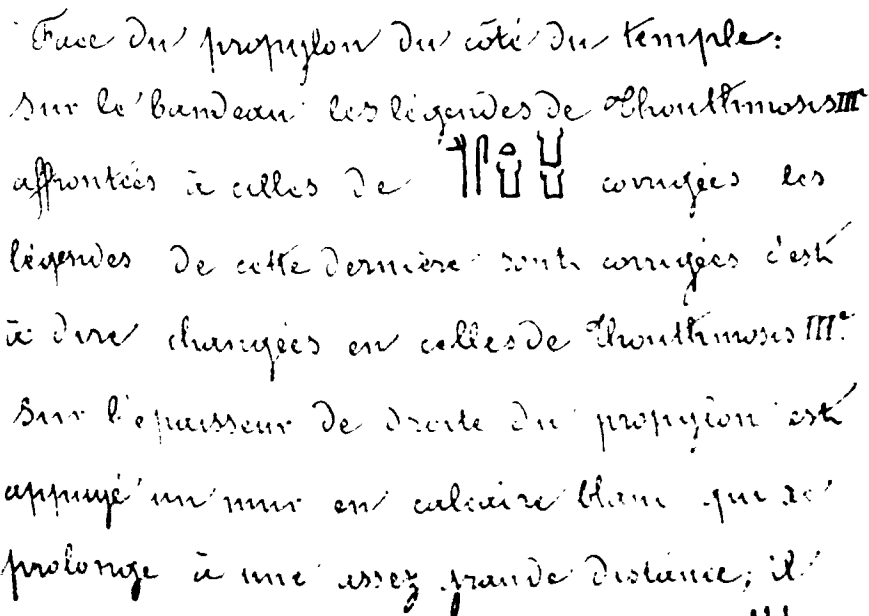 Face du propylon du côté du temple:
sur le bandeau les légendes de Thouthmosis III.e
affrontées à celles de corrigées les
légendes de cette dernière sont corrigées c'est
à dire changées en celles de Thouthmosis III.e
Sur l'épaisseur de droite du propylon est
appuyé un mur en calcaire blanc qui se
prolonge à une assez grande distance; il